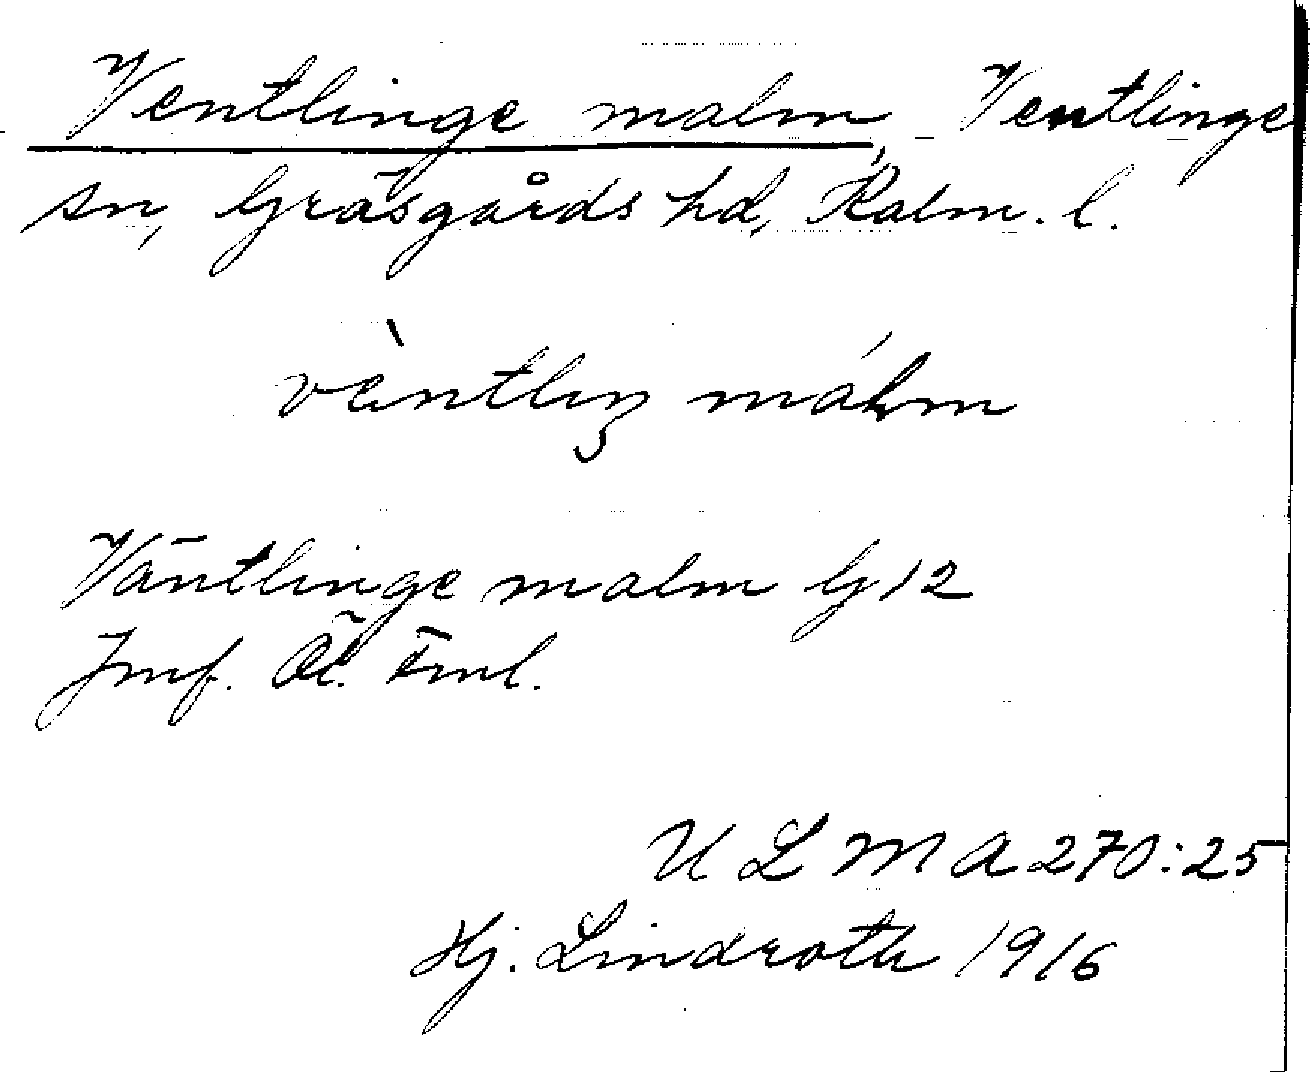 Ventlinge malm, Ventlinge
sn, Gräsgårds hd, Kalm. l.
vä̀ntlıŋ málm
Väntlinge malm G 12
Jmf. Öl. Eml.
U L M A 270:25
Hj. Lindroth 1916